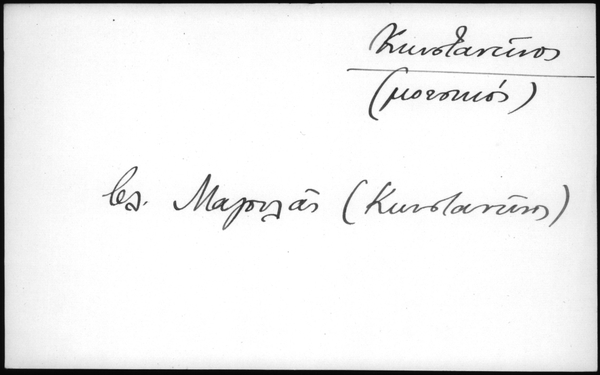 Κωνσταντῖνος
(μουσικός)
βλ. Μαρουλᾶς (Κωνσταντῖνος)